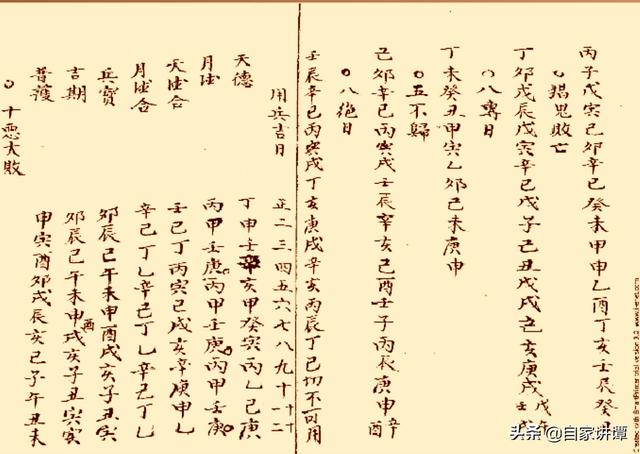 丙子戊寅己卯辛巳癸未甲申乙酉丁亥壬辰癸
○猖鬼敗亡
丁卯戊辰戊寅辛巳戊子己丑戊戌己亥庚戌戊午壬戌
○八專日
丁未癸丑甲寅乙卯己未庚申
○五不歸
己卯辛巳丙寅戌壬辰辛亥己酉壬子丙辰庚申辛酉
○八絕日
壬辰辛巳丙寅戌丁亥庚戌辛亥丙辰丁巳切不可用
用兵吉日 正二三四五六七八九十十一十二
天德 丁申壬辛亥甲癸寅丙乙己庚
月德 丙甲壬庚丙甲壬庚丙甲壬庚
天德合 壬己丁丙寅己戌亥辛庚申乙
月德合 辛己丁乙辛己丁乙辛己丁乙
兵寶 卯辰巳午未申酉戌亥子丑寅
吉期 卯辰巳午未申酉戌亥子丑寅
普護 申寅酉卯戌辰亥巳子午丑未
○十惡大敗
头条 @自家讲谭